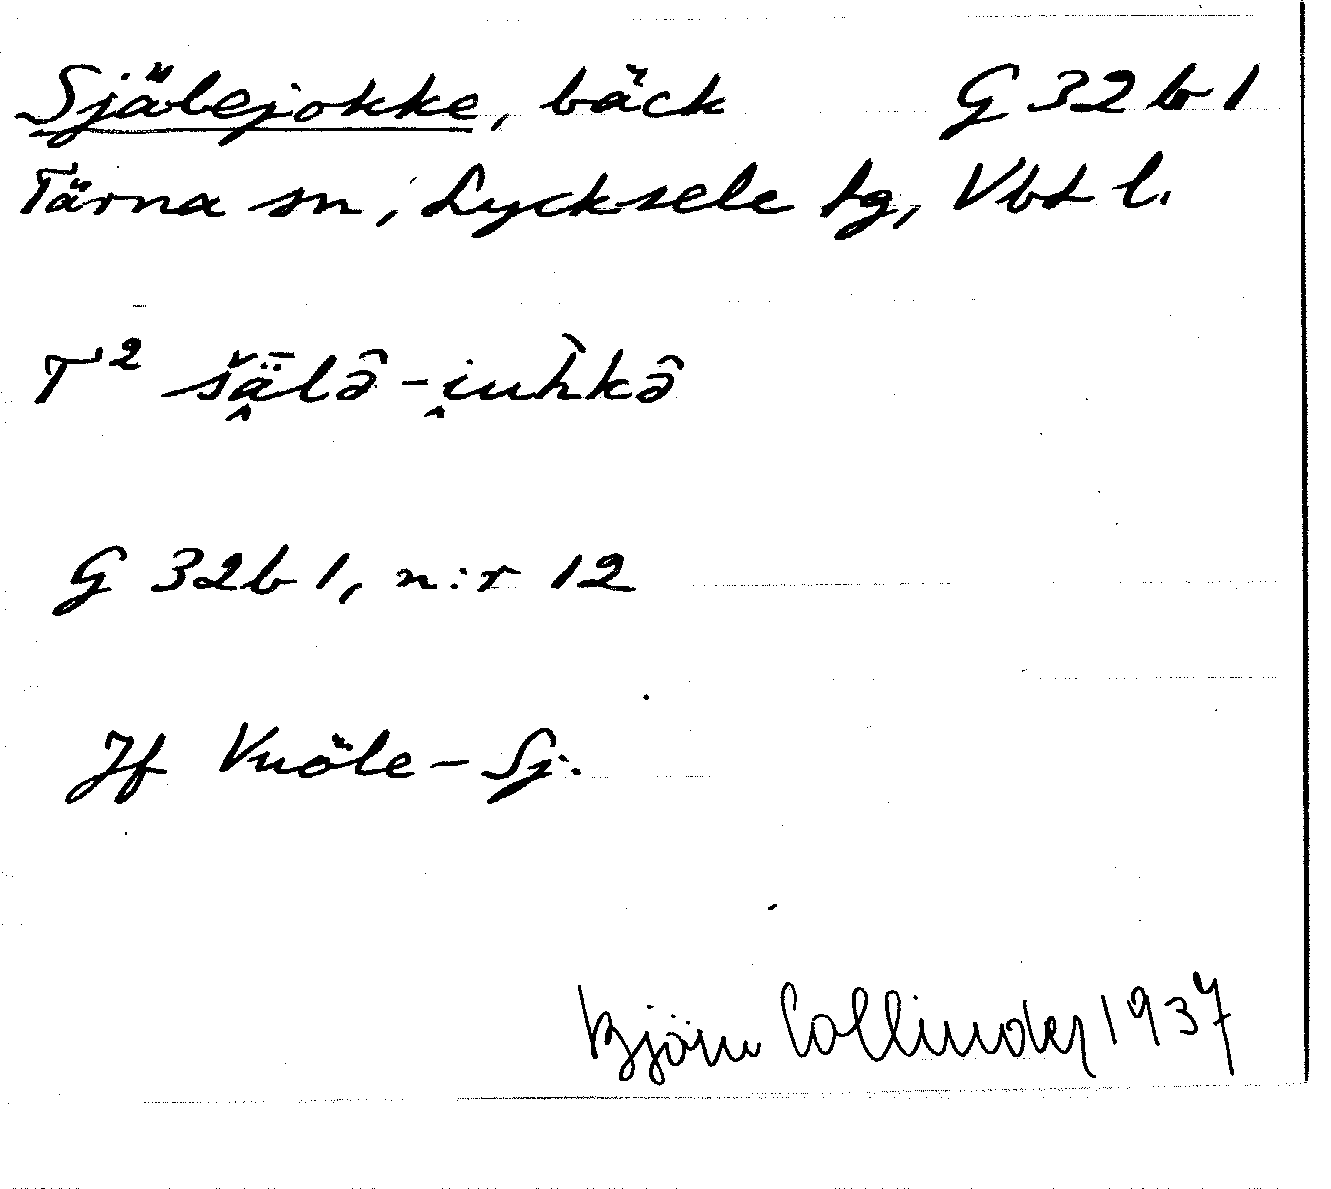 Själejokke, bäck G 32 b 1
Tärna sn, Lycksele lg, Vbt l.
T² šǟ̭lə̂ -i̭uh̀kə̂
G 32 b 1, n:r 12
Jf Vuöle-Sj.
Björn Collinder 1937